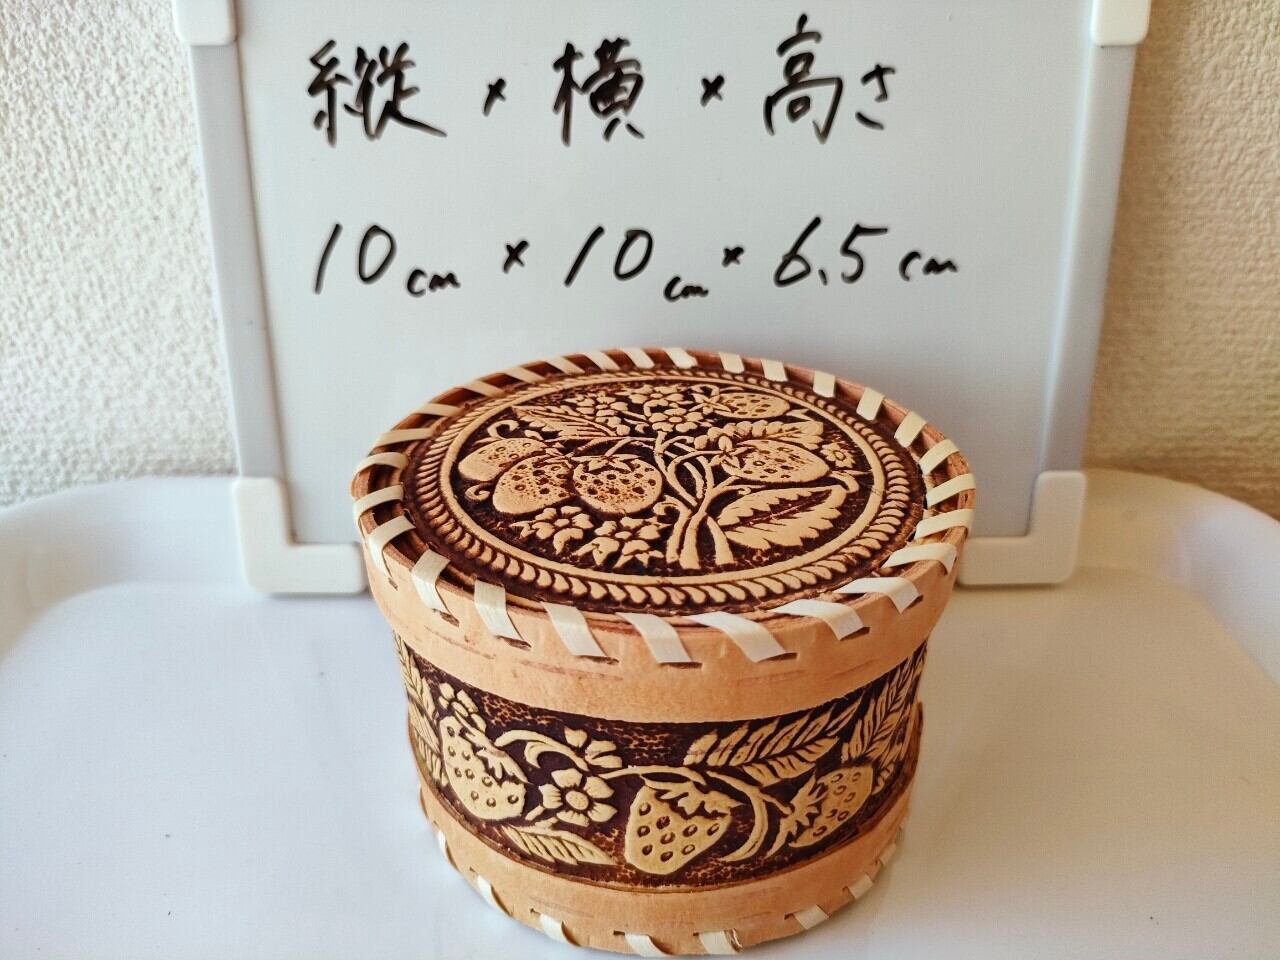 縦×横×高さ
10cm×10cm×6.5cm